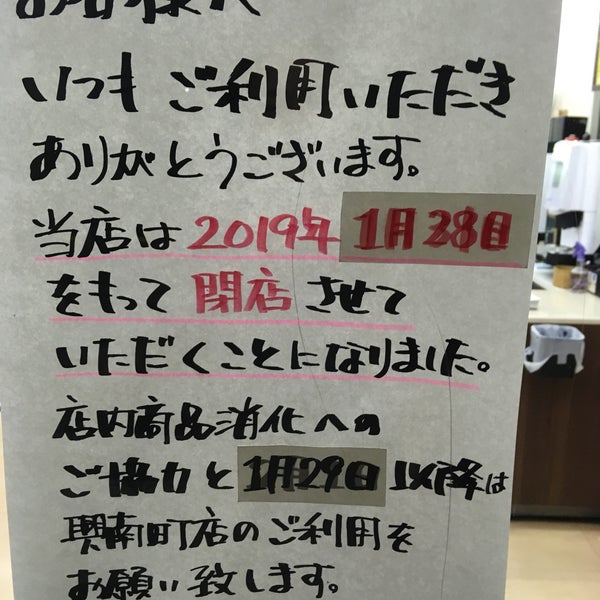 お客様へ
いつもご利用いただき
ありがとうございます。
当店は2019年1月28日
をもって閉店させて
いただくことになりました。
店内商品消化への
ご協力と1月29日以降は
興南町店のご利用を
お願い致します。